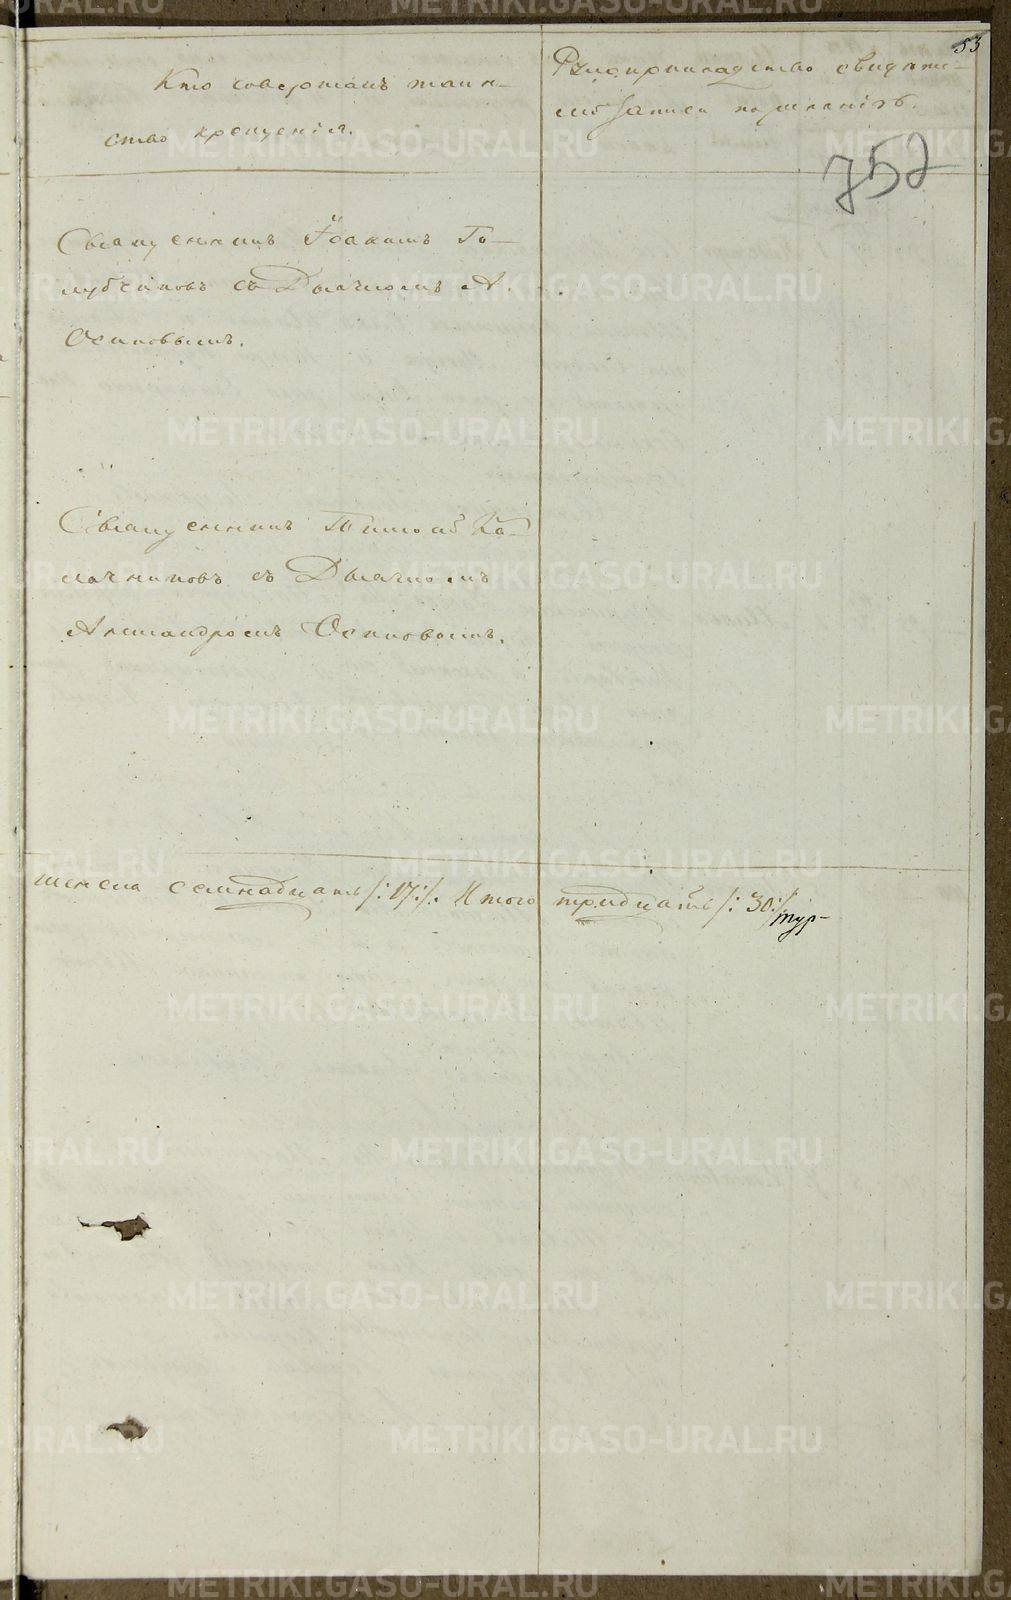 53
Кто совершалъ таин-
ство крещенія.
Рукоприкладство свидѣте-
лей записи по желанію.
752
Священникъ Іоакимъ Го-
лубчиковъ съ Дьячкомъ А.
Осиповымъ.
Священникъ Тимоѳей Ка-
лачниковъ съ Дьячкомъ
Александромъ Осиповымъ.
женска семнадцать /:17:/. Итого тридцать /:30:/
METRIKI.GASO-URAL.RU